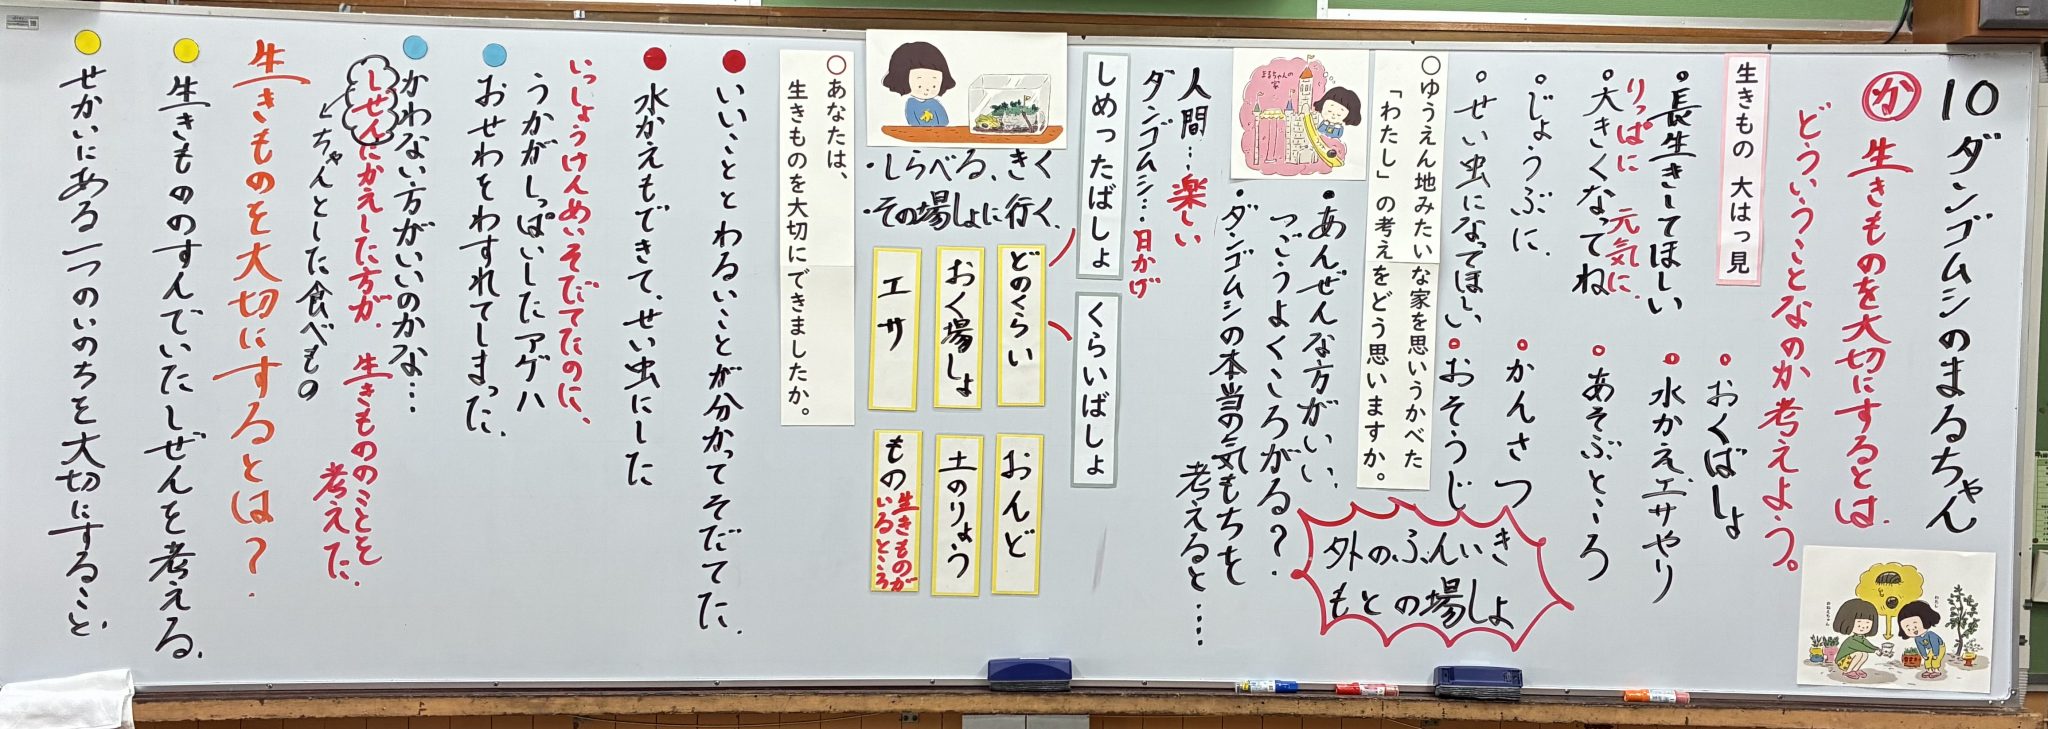 10 ダンゴムシのまるちゃん
か 生きものを大切にするとは、
どういうことなのか考えよう。
生きもの 大はっ見
・長生きしてほしい
りっぱに 元気に
・大きくなってね
・じょうぶに
・せい虫になってほしい
・おくばしょ
・水かえ、エサやり
・あそぶところ
・かんさつ
・おそうじ
外のふんいき
もとの場しょ
○ゆうえん地みたいな家を思いうかべた
「わたし」の考えをどう思いますか。
まるちゃんの
家
・あんぜんな方がいい、
つごうよくころがる?
・ダンゴムシの本当の気もちを
考えると……
人間…楽しい
ダンゴムシ…日かげ
しめったばしょ
くらいばしょ
・しらべる、きく
・その場しょに行く、
どのくらい
おく場しょ
エサ
おんど
土のりょう
もの
生きものが
いるところ
○あなたは、
生きものを大切にできましたか。
いいこととわるいことが分かってそだてた、
水かえもできて、せい虫にした
いっしょうけんめいそだてたのに、
うかがしっぱいしたアゲハ
おせわをわすれてしまった、
かわない方がいいのかな…
しぜんにかえした方が、生きもののことを
考えた、
ちゃんとした食べもの
生きものを大切にするとは?
生きもののすんでいたしぜんを考える、
せかいにある一つのいのちを大切にすること、